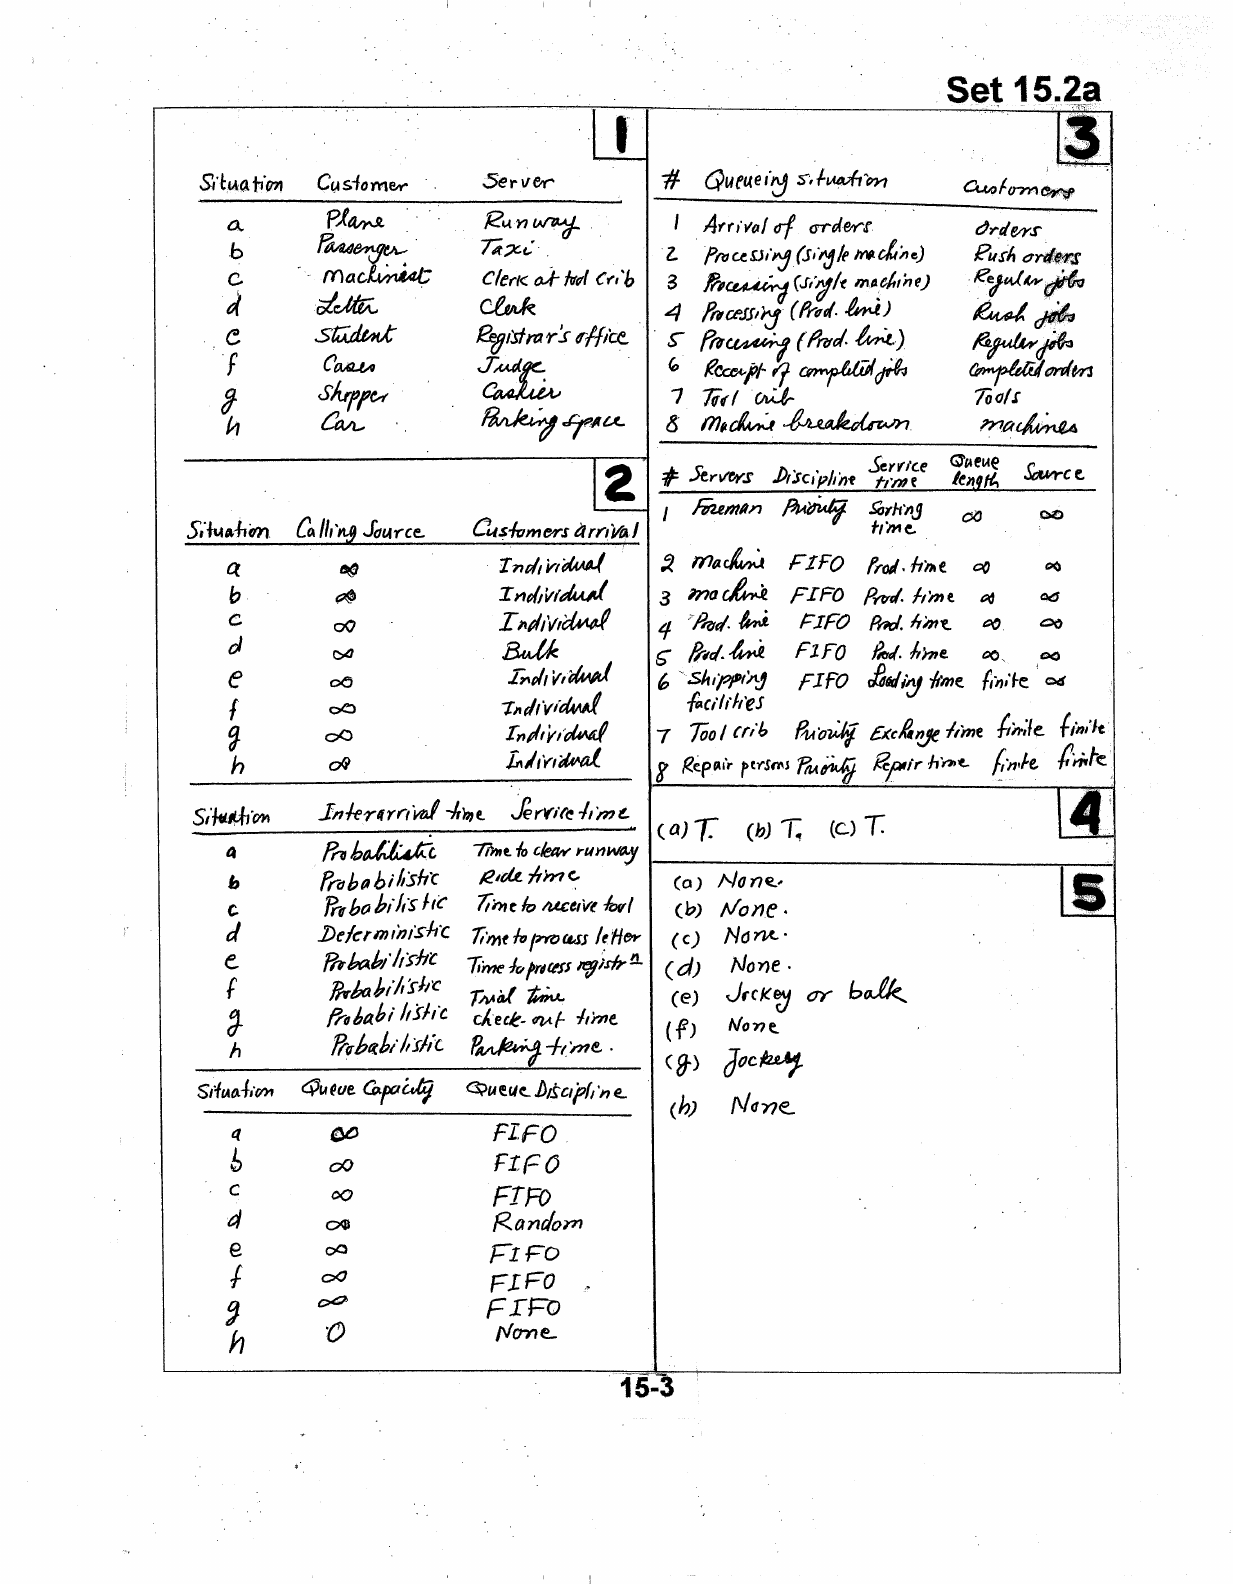 Set 15.2a
1
Situation Customer Server
a Plane Runway
b Passenger Taxi
c Machinist Clerk at tool crib
d Letter Clerk
e Student Registrar's office
f Cases Judge
g Shopper Cashier
h Car Parking space
2
Situation Calling Source Customers arrival
a ∞ Individual
b ∞ Individual
c ∞ Individual
d ∞ Bulk
e ∞ Individual
f ∞ Individual
g ∞ Individual
h ∞ Individual
Situation Interarrival time Service time
a Probabilistic Time to clear runway
b Probabilistic Ride time
c Probabilistic Time to receive tool
d Deterministic Time to process letter
e Probabilistic Time to process registrⁿ
f Probabilistic Trial time
g Probabilistic check-out time
h Probabilistic Parking time.
Situation Queue Capacity Queue Discipline
a ∞ FIFO
b ∞ FIFO
c ∞ FIFO
d ∞ Random
e ∞ FIFO
f ∞ FIFO
g ∞ FIFO
h 0 None
3
# Queueing situation Customers
1 Arrival of orders Orders
2 Processing (single machine) Rush orders
3 Processing (single machine) Regular jobs
4 Processing (Prod. line) Rush jobs
5 Processing (Prod. line) Regular jobs
6 Receipt of completed jobs Completed orders
7 Tool crib Tools
8 Machine breakdown machines
# Servers Discipline Service time Queue length Source
1 Foreman Priority Sorting time ∞ ∞
2 machine FIFO Prod. time ∞ ∞
3 machine FIFO Prod. time ∞ ∞
4 Prod. line FIFO Prod. time ∞ ∞
5 Prod. line FIFO Prod. time ∞ ∞
6 Shipping facilities FIFO Loading time finite ∞
7 Tool crib Priority Exchange time finite finite
8 Repair persons Priority Repair time finite finite
4
(a) T. (b) T. (c) T.
5
(a) None.
(b) None.
(c) None.
(d) None.
(e) Jockey or balk
(f) None
(g) Jockey
(h) None
15-3